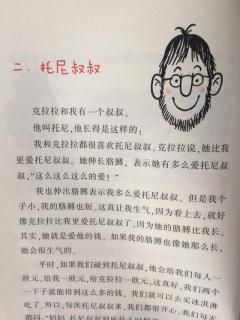 二、托尼叔叔
克拉拉和我有一个叔叔。
他叫托尼,他长得是这样的:
我和克拉拉都很喜欢托尼叔叔。克拉拉说,她比我
更爱托尼叔叔。她伸长胳膊,表示她有多么爱托尼叔
叔,“这么这么这么的爱!”
我也伸出胳膊表示我多么爱托尼叔叔。但是我个
子小,我的胳膊也短,这真让我生气,因为看上去,就好
像克拉拉比我更爱托尼叔叔了,因为她的胳膊比我长。
其实,她就是爱他的钱。如果我的胳膊也像她那么长,
她会很生气的。
平时,如果我们碰到托尼叔叔,他会给我们每人一
欧元,给我一欧元,给克拉拉一欧元,这真好,我们两个
一下子就能得到这么多的钱,我们就可以去买冰淇淋
吃了。所以,每次托尼叔叔来,我们都很开心。我们每天
都问:“妈妈,托尼叔叔